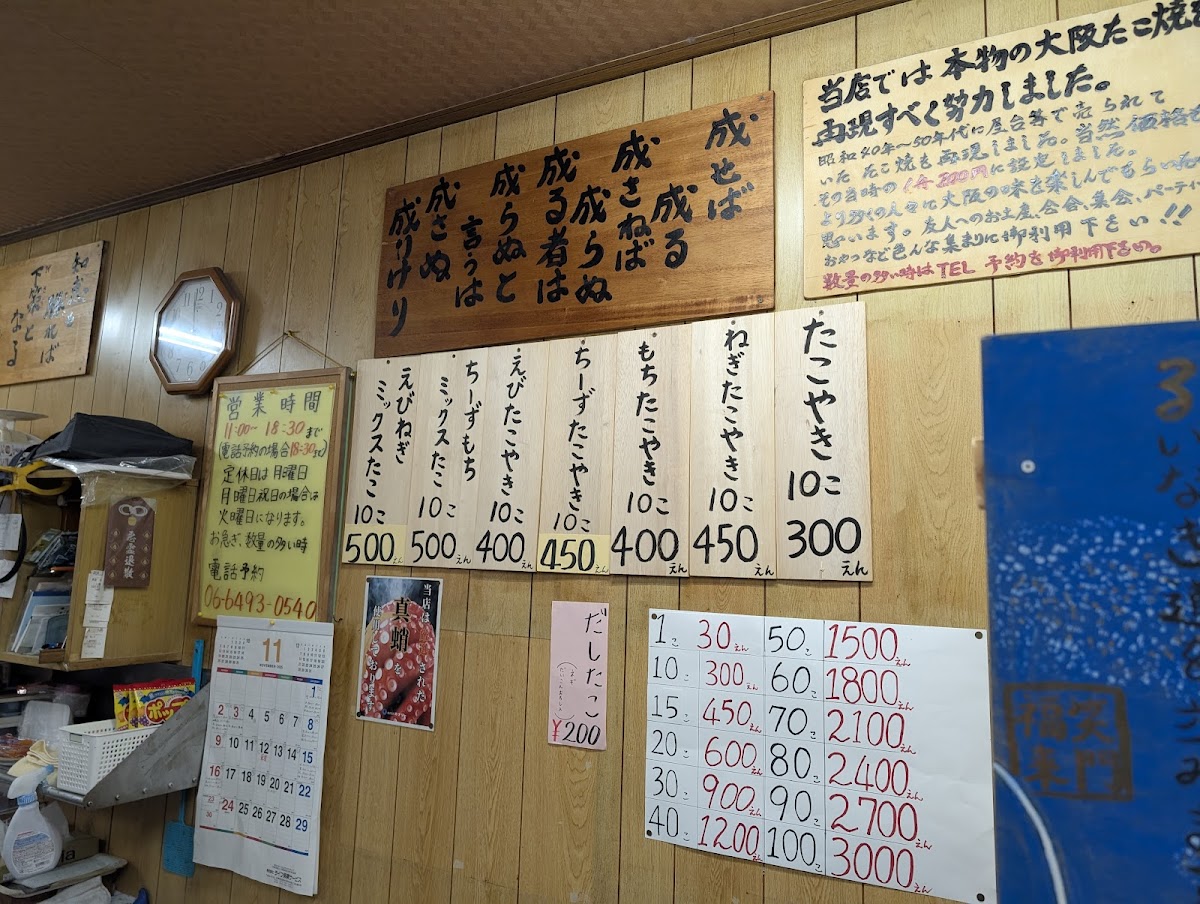 当店では本物の大阪たこ焼き
再現すべく努力しました。
昭和40年~50年代に屋台等で売られて
いたたこ焼を再現しました。当然価格も
その当時の1舟200円に設定しました。
より多くの人々に大阪の味を楽しんでもらいた
思います。友人へのお土産、会合、集会、パーティ
おやつなど色んな集まりに御利用下さい!!
数量の多い時はTEL 予約を御利用下さい。
成せば
成る
成さねば
成らぬ
成る者は
成らぬと
言うは
成さぬ
成りけり
下
なる
たこやき 10こ
300えん
ねぎたこやき 10こ
450えん
もちたこやき 10こ
400えん
ちーずたこやき 10こ
450えん
えびたこやき 10こ
400えん
ちーずもち
ミックスたこ 10こ
500えん
えびねぎ
ミックスたこ 10こ
500えん
営業時間
11:00~18:30まで
(電話予約の場合18:30まで)
定休日は月曜日
月曜日祝日の場合は
火曜日になります。
お急ぎ、数量の多い時
電話予約
06-6493-0540
11
1
2 3 4 5 6 7 8
9 10 11 12 13 14 15
16 17 18 19 20 21 22
23 24 25 26 27 28 29
30
当店は
真蛸を
使用しております
だしたこ
¥200
1こ 30えん
10こ 300えん
15こ 450えん
20こ 600えん
30こ 900えん
40こ 1200えん
50こ 1500えん
60こ 1800えん
70こ 2100えん
80こ 2400えん
90こ 2700えん
100こ 3000えん
悪霊退散
笑門
福来